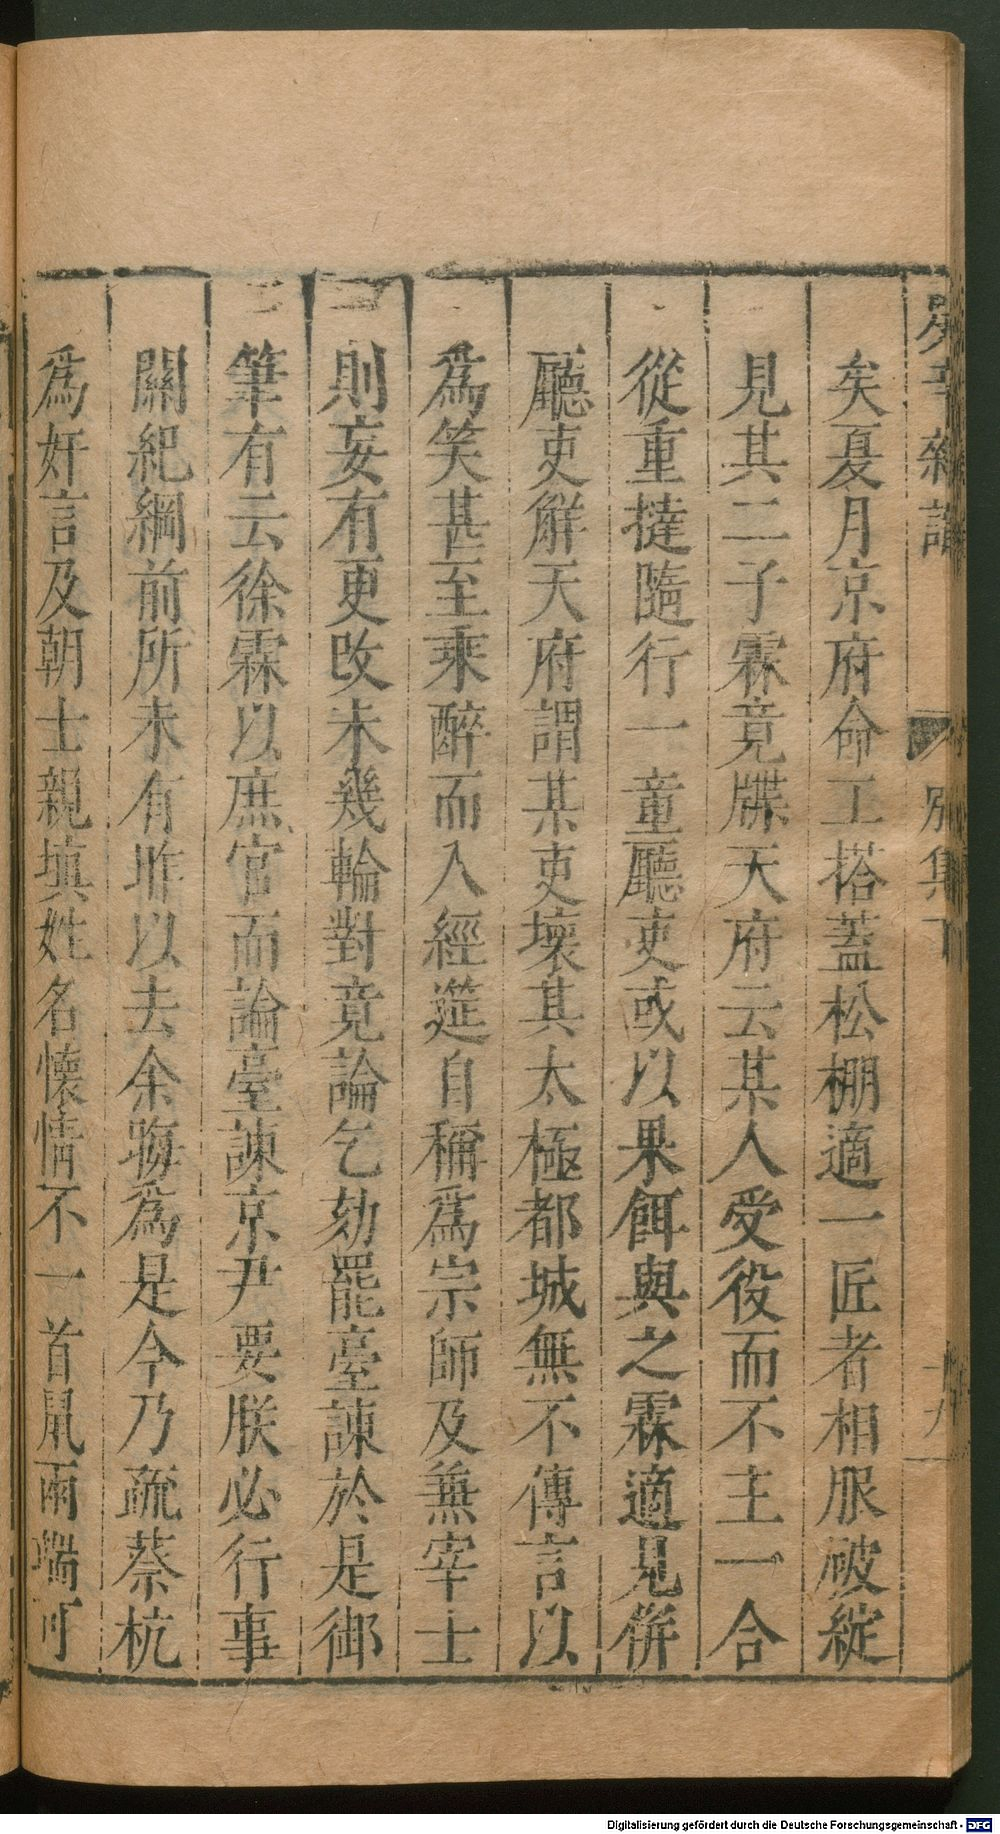 癸辛雜識 別集下 十九
矣夏月京府命工搭蓋松棚適一匠者相服破綻
見其二子霖竟牒天府云某人受役而不主一合
從重撻隨行一童廳吏或以果餌與之霖適見併
廳吏觧天府謂某吏壞其太極都城無不傳言以
為笑甚至乘醉而入經筵自稱為宗師及兼宰士
則妄有更改未幾輪對竟論乞劾罷臺諫於是御
筆有云徐霖以庶官而論臺諫京尹要朕必行事
關紀綱前所未有昨以去余晦為是今乃疏蔡杭
為奸言及朝士親填姓名懷情不一首鼠兩端可
Digitalisierung gefördert durch die Deutsche Forschungsgemeinschaft - DFG